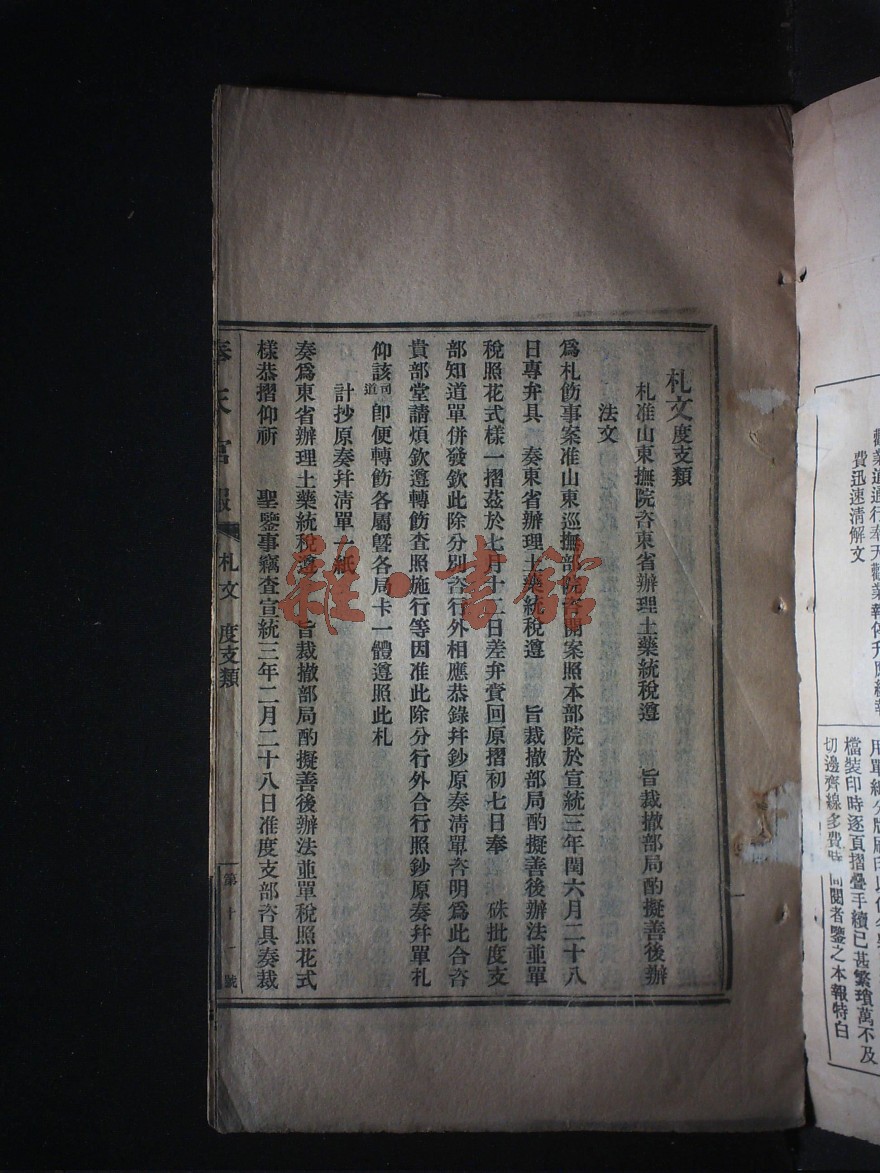 費迅速清解文
用單紙分版
檔裝印時逐頁摺疊手續已甚繁瑣萬不及
切邊齊線多費時
閱者鑒之本報特白
札文度支類
札准山東撫院咨東省辦理土藥統稅遵 旨裁撤部局酌擬善後辦
法文
為札飭事案准山東巡撫部院咨開案照本部院於宣統三年閏六月二十八
日專弁具 奏東省辦理土藥統稅遵 旨裁撤部局酌擬善後辦法並單
稅照花式樣一摺茲於七月十二日差弁賫回原摺初七日奉 硃批度支
部知道單併發欽此除分別咨行外相應恭錄幷鈔原奏清單咨明為此合咨
貴部堂請煩欽遵轉飭查照施行等因准此除分行外合行照鈔原奏幷單札
仰該司道即便轉飭各屬曁各局卡一體遵照此札
計抄原奏幷清單一紙
奏為東省辦理土藥統稅遵 旨裁撤部局酌擬善後辦法並單稅照花式
樣恭摺仰祈 聖鑒事竊查宣統三年二月二十八日准度支部咨具奏裁
奉天官報 札文 度支類 第十一號
雜·書館